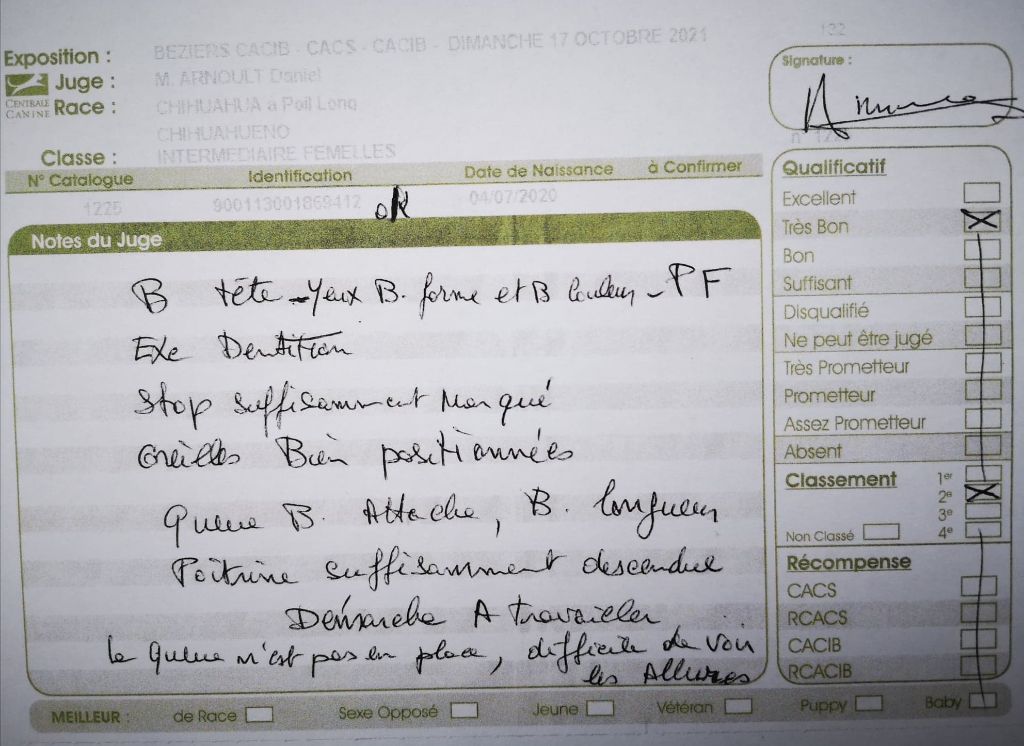 Exposition : BEZIERS CACIB - CACS - CACIB - DIMANCHE 17 OCTOBRE 2021
Juge : M. ARNOULT Daniel
CENTRALE CANINE
Race : CHIHUAHUA à Poil Long
CHIHUAHUENO
Classe : INTERMEDIAIRE FEMELLES
Signature :
N° Catalogue Identification Date de Naissance à Confirmer
1225 900113001869412 ok 04/07/2020
Notes du Juge
B tête - Yeux B. forme et B couleur - PF
Exe Dentition
Stop suffisamment Marqué
Oreilles Bien positionnées
Queue B. Attache, B. longueur
Poitrine suffisamment descendue
Démarche A travailler
la Queue n'est pas en place, difficile de voir
les Allures
Qualificatif
Excellent
Très Bon
Bon
Suffisant
Disqualifié
Ne peut être jugé
Très Prometteur
Prometteur
Assez Prometteur
Absent
Classement 1er
2e
3e
Non Classé 4e
Récompense
CACS
RCACS
CACIB
RCACIB
MEILLEUR : de Race Sexe Opposé Jeune Vétéran Puppy Baby